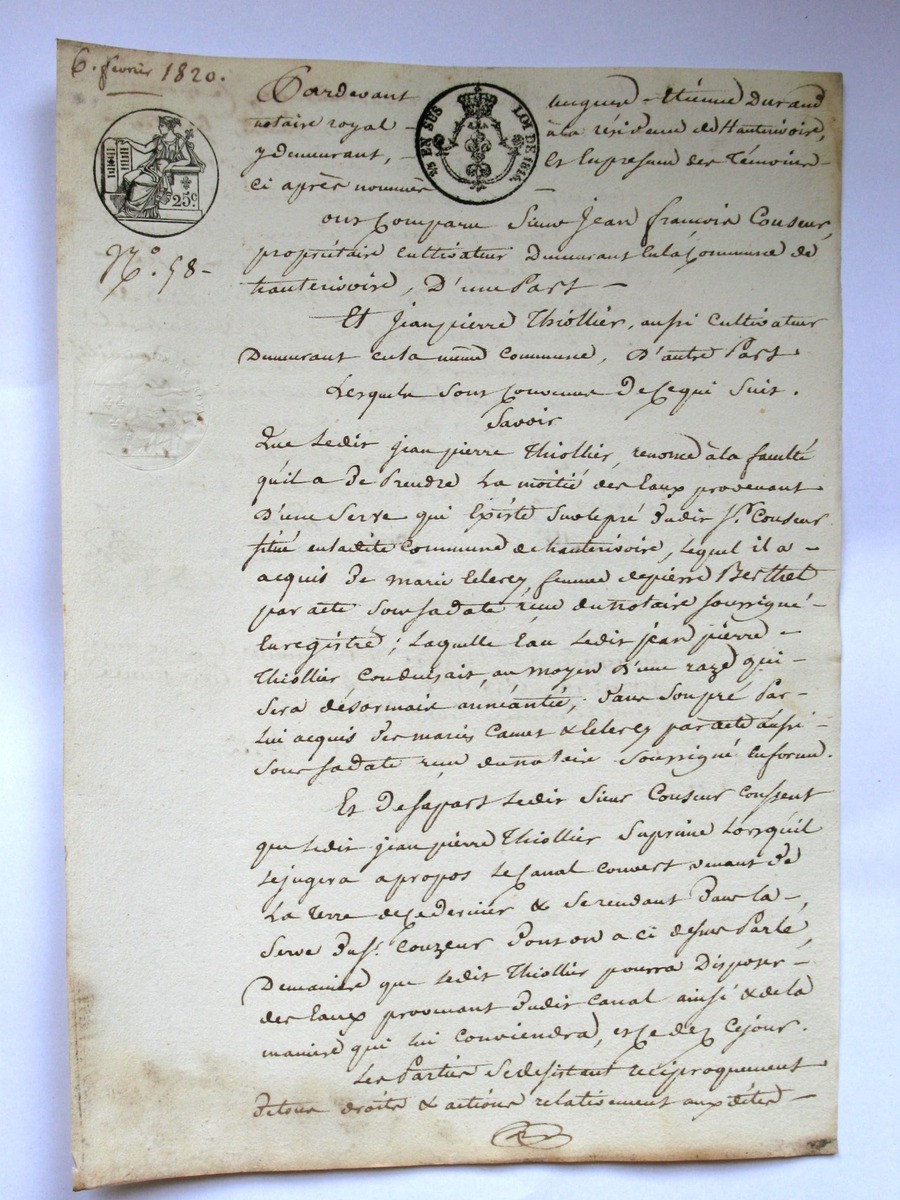 6. février 1820.
Pardevant Etienne Durand
notaire royal à la résidence de Hauterivoire,
y demeurant, et en presence des Témoins
ci après nommés
25 EN SUS LOI DE 1816.
25c.
N.o 58
ont Comparu Sieur Jean françois Couseur,
propriétaire cultivateur Demeurant en la Commune de
hauterivoire, D'une Part
Et Jean pierre Thiollier, aussi Cultivateur
Demeurant en la même Commune, D'autre Part
Lesquels sont Convenus De Ce qui Suit.
Savoir
Que Ledit jean pierre Thiollier, renonce à la faculté
qu'il a De Prendre La moitié des Eaux provenant
D'une Serve qui Existe Sur le pré Dudit Sr. Couseur
situé en ladite Commune de hauterivoire, lequel il a
acquis De marie Clercy, femme de pierre Berthet
par acte sous sa date reçu du notaire soussigné
Enregistré; Laquelle Eau Ledit jean pierre
Thiollier, Conduisait au moyen d'une raze qui
Sera désormais anéantie, dans son pré Par
Lui acquis Des mariés Camet & Clercy par acte aussi
Sous sa date reçu du notaire Soussigné En forme.
Et De sa part Ledit Sieur Couseur Consent
que Ledit jean pierre Thiollier Suprime Lorsqu'il
Le jugera apropos Le Canal Couvert venant De
La Terre de ce dernier & Se rendant Dans la
Serve Du Sr. Couzeur Dont on a ci dessus Parlé,
De manière que Ledit Thiollier pourra Disposer
des Eaux provenant Dudit Canal ainsi & de la
maniere qui lui Conviendra, et Ce dez Ce jour.
Les Parties Se désistant réciproquement
De tous droits & actions relativement aux dites